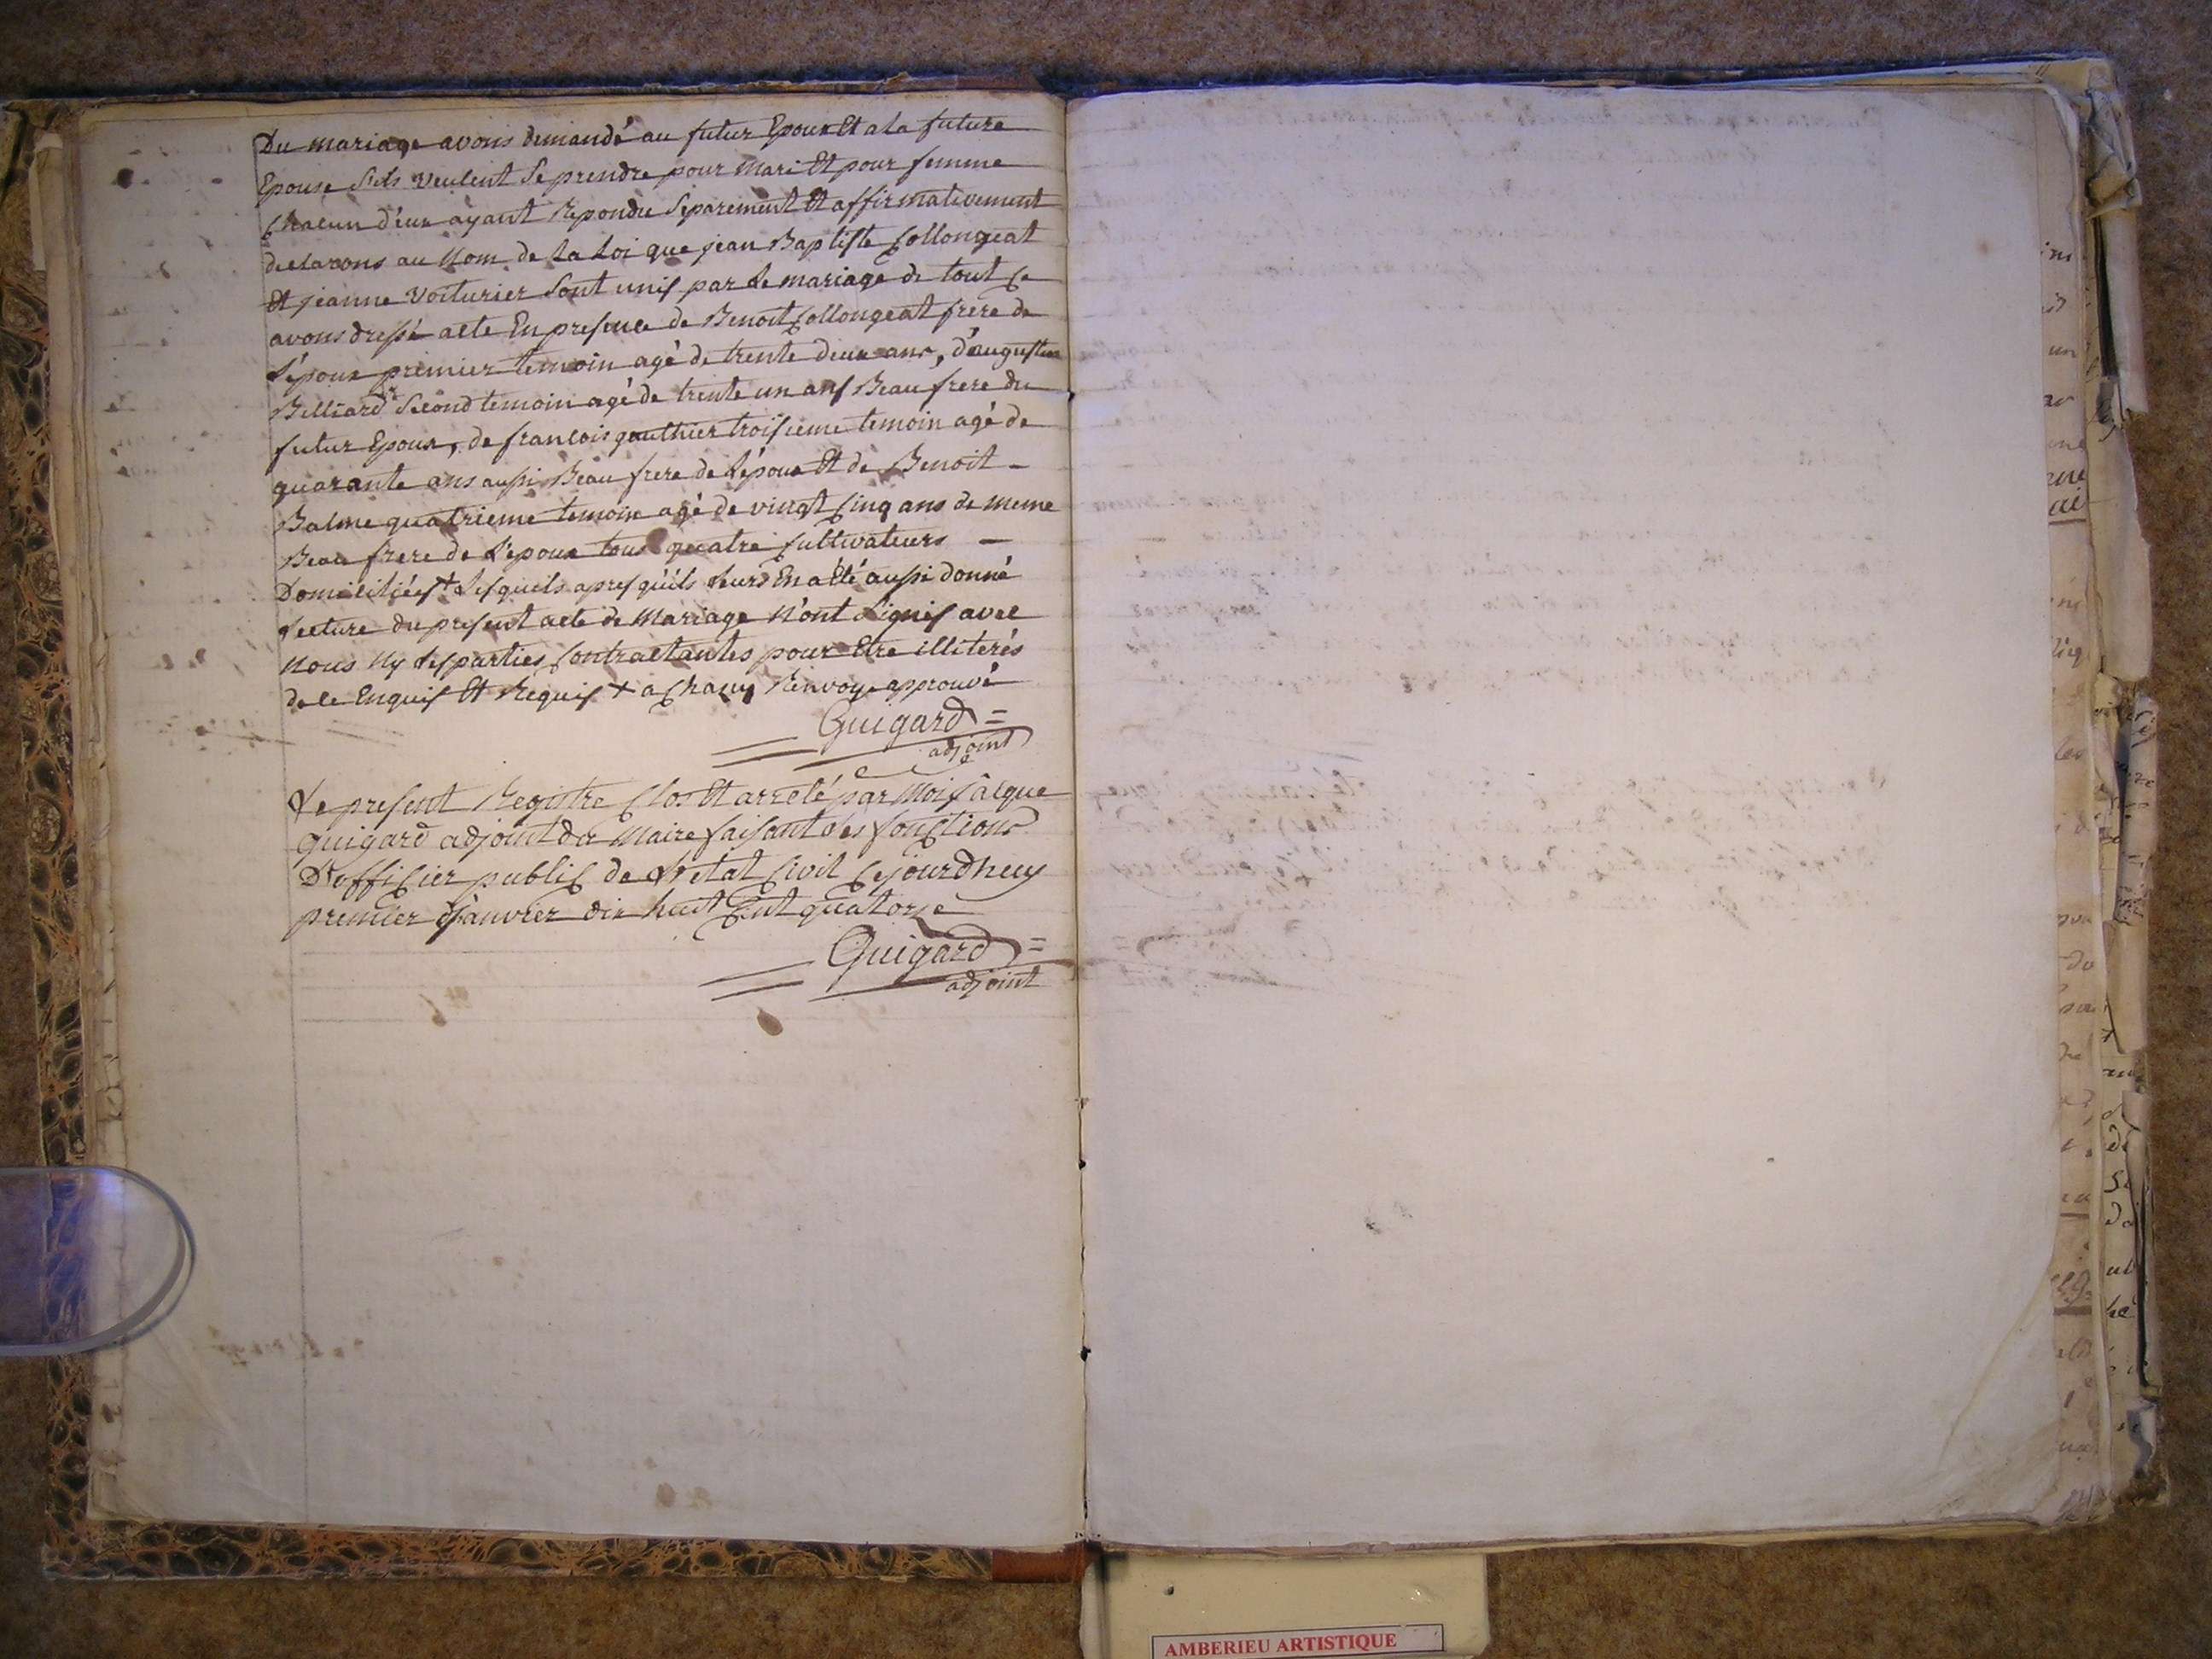 Du mariage avons demandé au futur Epoux Et a la future
Epouse S'ils veulent Se prendre pour Mari Et pour femme
Chacun d'eux ayant Repondu Separement Et affirmativement
declarons au Nom de La Loi que jean Baptiste Collongeat
Et jeanne Voiturier Sont unis par Le mariage de tout Ce
avons dressé acte En presence de Benoit Collongeat frere de
L'époux premier temoin agé de trente deux ans, d'augustin
Billiard Second temoin agé de trente un ans Beau frere du
futur Epoux, de francois gauthier troisieme temoin agé de
quarante ans aussi Beau frere de L'époux Et de Benoit -
Balme quatrieme temoin agé de vingt Cinq ans de meme
Beau frere de L'epoux tous quatre Cultivateurs -
Domiciliées + Lesquels apres qu'ils Leurs En a Eté aussi donné
Lecture du present acte de Mariage N'ont Signes avec
Nous Ny Les parties Contractantes pour Etre illiterés
de Ce Enquis Et Requis + a Renvoye approuvé
Guigard =
adjoint
Le present Registre Clos Et arreté par Moi Jâcque
guigard adjoint du Maire faisant Les fonctions
D'officier public de L'etat Civil Cejourdhuy
premier Janvier dix huit Cent quatorze
Guigard =
adjoint
AMBERIEU ARTISTIQUE